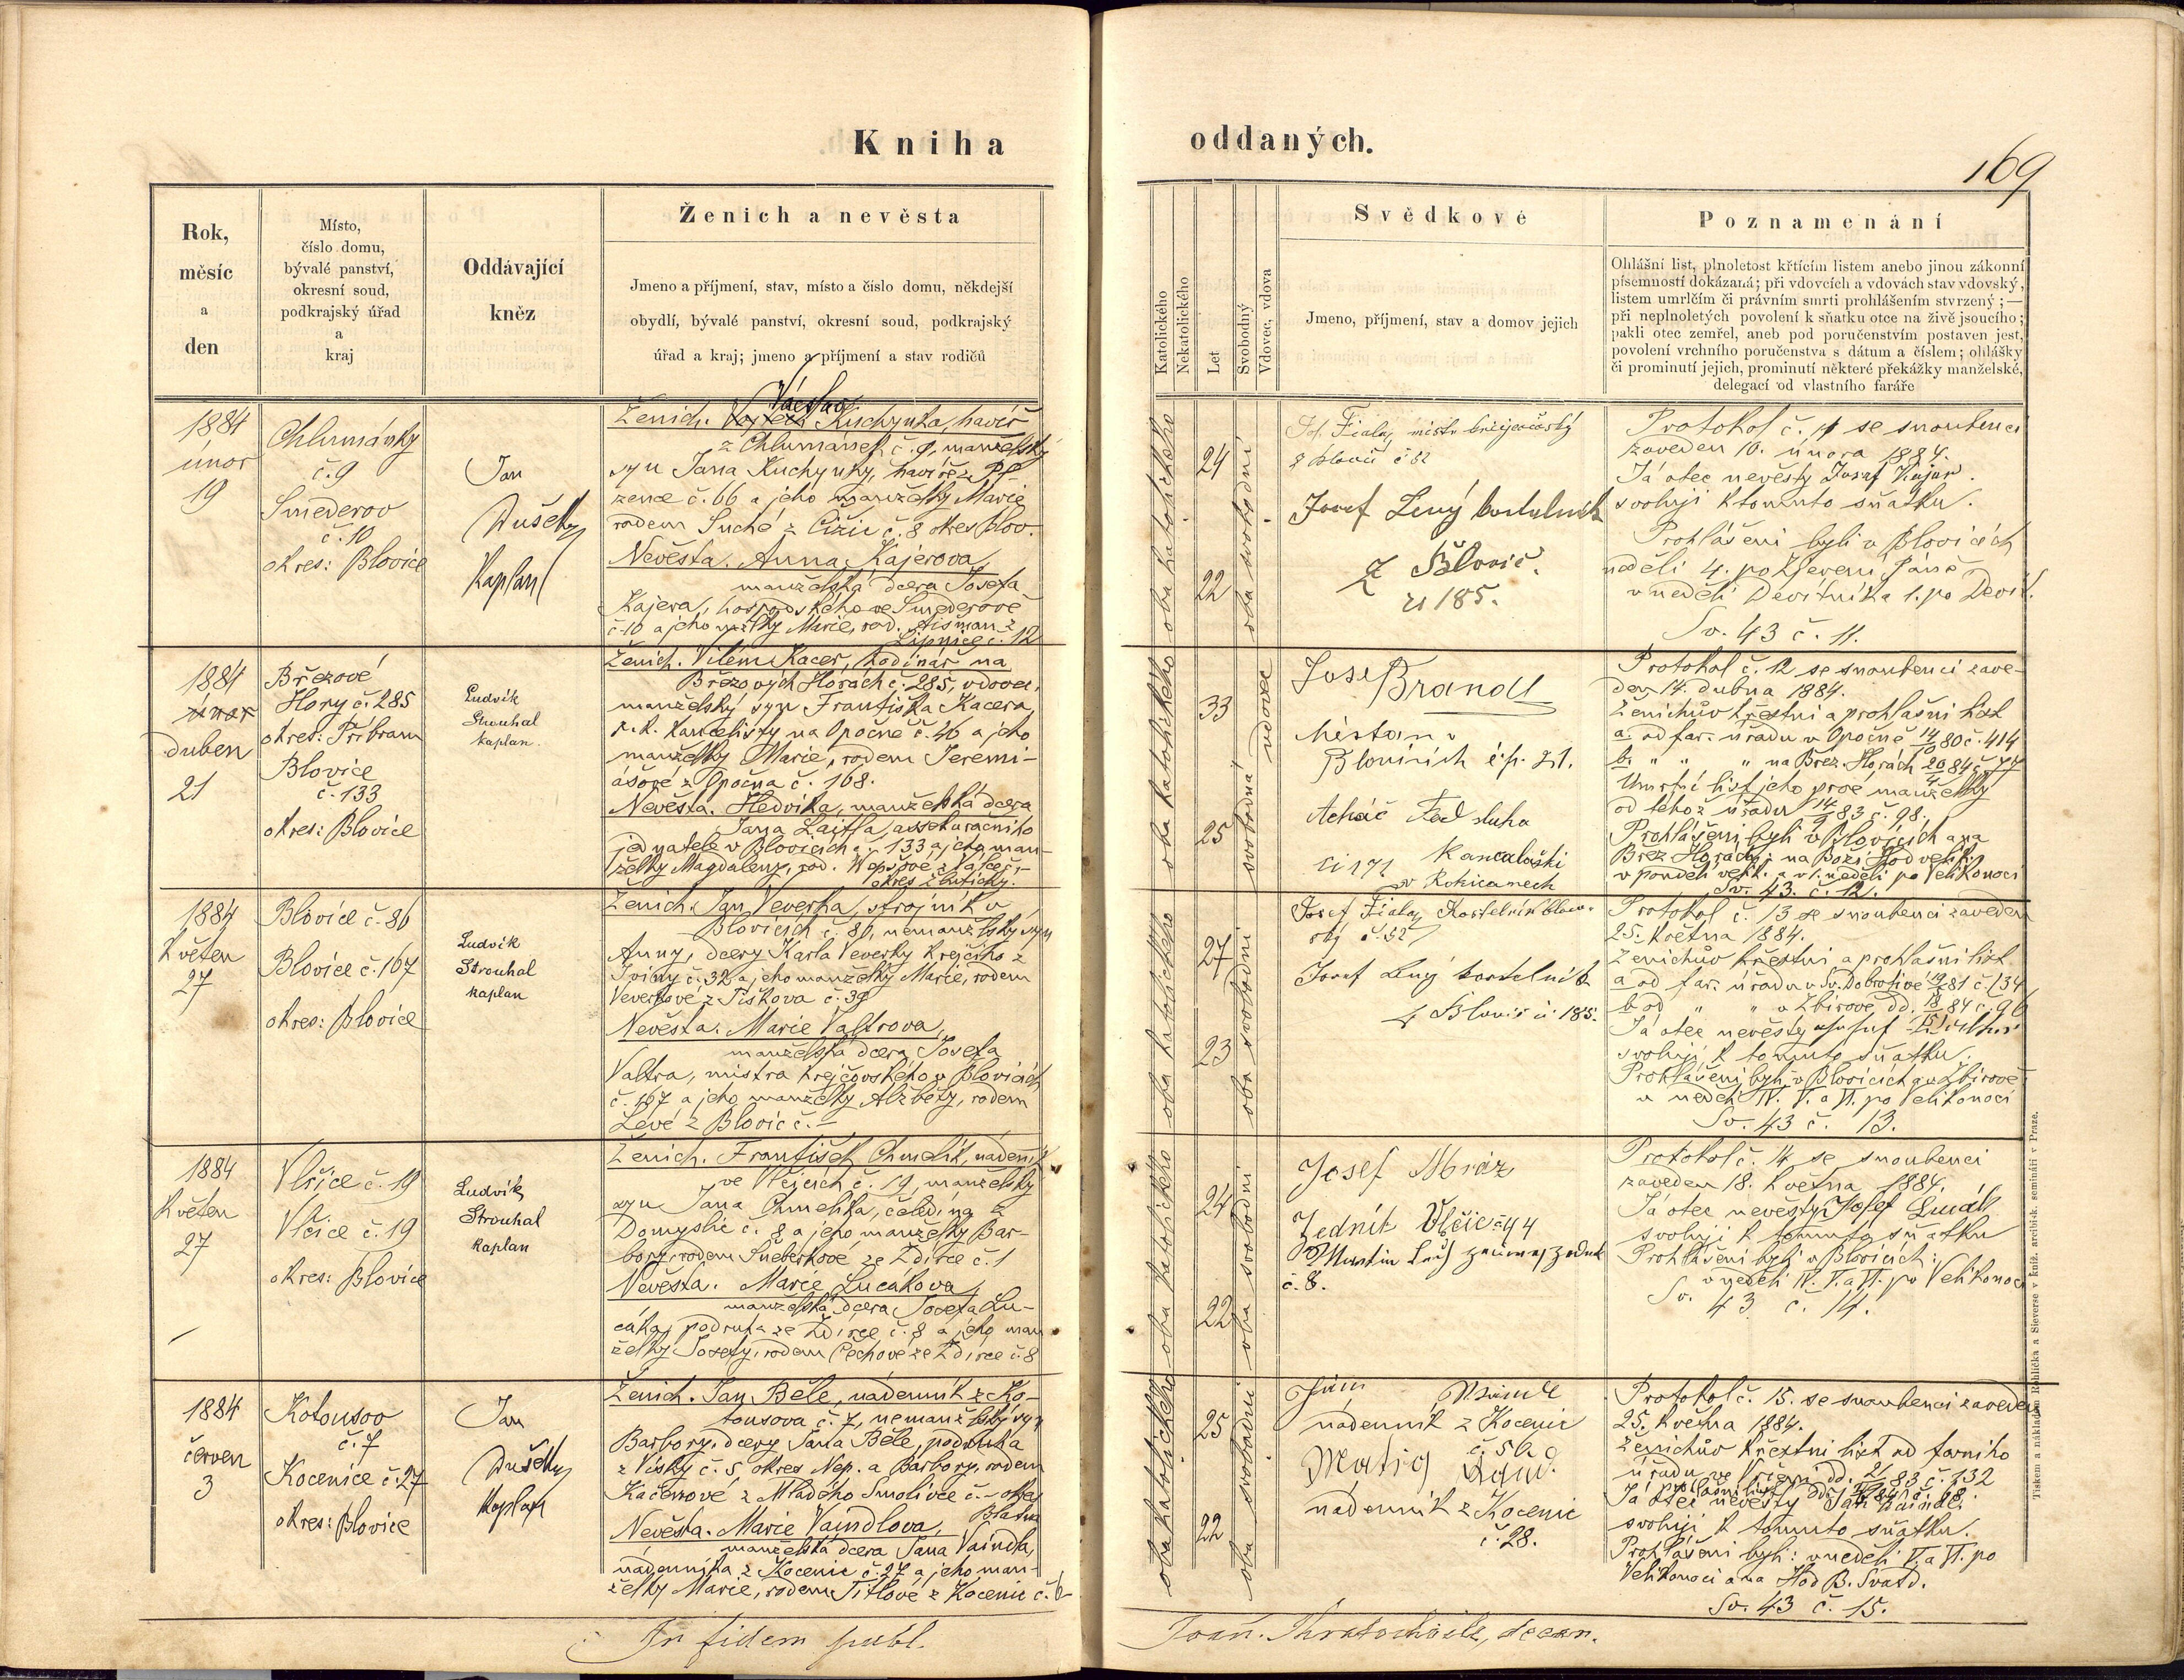 Kniha
oddaných.
169
Rok,
měsíc
a
den
Místo,
číslo domu,
bývalé panství,
okresní soud,
podkrajský úřad
a
kraj
Oddávající
kněz
Ženich a nevěsta
Jmeno a příjmení, stav, místo a číslo domu, někdejší
obydlí, bývalé panství, okresní soud, podkrajský
úřad a kraj; jmeno a příjmení a stav rodičů
Katolického
Nekatolického
Let
Svobodný
Vdovec, vdova
Svědkové
Jmeno, příjmení, stav a domov jejich
Poznamenání
Ohlášní list, plnoletost křtícím listem anebo jinou zákonní
písemností dokázaná; při vdovcích a vdovách stav vdovský,
listem umrlčím či právním smrti prohlášením stvrzený; —
při neplnoletých povolení k sňatku otce na živě jsoucího;
pakli otec zemřel, aneb pod poručenstvím postaven jest,
povolení vrchního poručenstva s dátum a číslem; ohlášky
či prominutí jejich, prominutí některé překážky manželské,
delegací od vlastního faráře
1884
únor
19
Chlumánky
č. 9
Smederov
č. 10
okres: Blovice
Jan
Dušek
Kaplan
Václav
Ženich. Vojtěch Kuchynka, havíř
z Chlumánek č. 9, manželský
syn Jana Kuchynky, havíře z Pl-
zence č. 66 a jeho manželky Marie
rodem Suché z Čižic č. 8 okres Blov.
Nevěsta. Anna Kajerova
manželská dcera Josefa
Kajera, hospodského ve Smederově
č. 10 a jeho mžlky Marie, rod.
Lipnice č. 12
oba katolického
24
22
oba svobodní
Jos. Fiala, mistr
z Blovic č 52
Josef Lený kostelník
z Blovic
č 185.
Protokol č. 11 se snoubenci
zaveden 10. února 1884.
Já otec nevěsty Josef Kajer
svoluji k tomuto sňatku.
Prohlášeni byli v Blovicích
neděli 4. po Zjevení Páně
v neděli Devítníka 1. po Devít.
Sv. 43 č. 11.
1884
únor
duben
21
Březové
Hory č. 285
okres: Příbram
Blovice
č. 133
okres: Blovice
Ludvík
Strouhal
kaplan.
Ženich. Vilém Kacer, hodinář na
Březových Horách č. 285, vdovec,
manželský syn Františka Kacera,
c. k. kancelisty na Opočně č. 46 a jeho
manželky Marie, rodem Jeremi-
ášové z Opočna č. 168.
Nevěsta. Hedvika, manželská dcera
Jana Lajtla, assekuračního
jednatele v Blovicích č. 133 a jeho man-
želky Magdaleny, rod.
okres Žlutický.
oba katolického
33
25
vdovec
svobodná
Josef Brandl
Měštan v
Blovicích č. p. 21.
sluha
či 171
v Rokicanech
Protokol č. 12 se snoubenci zave-
den 14. dubna 1884.
Ženichův křestní a prohlašní list
a. od far. úřadu v Opočně 14/10 80 č. 414
b. " " " na Břez. Horách 20/4 84 č. 77
Umrtní list jeho prvé manželky
od téhož úřadu 14/9 83 č. 98.
Prohlášeni byli v Blovicích a na
Břez. Horách: na Boží Hod velik.
v pondělí velik. a v 1. neděli po Velikonoci
Sv. 43. č. 12.
1884
Květen
27
Blovice č. 86
Blovice č. 167
okres: Blovice
Ludvík
Strouhal
kaplan
Ženich. Jan Veverka, strojník v
Blovicích č. 86, nemanželský syn
Anny, dcery Karla Veverky krejčího z
Jviny č. 32 a jeho manželky Marie, rodem
Veverkové z Tiškova č. 39
Nevěsta. Marie Valtrova,
manželská dcera Josefa
Valtra, mistra krejčovského v Blovicích
č. 167 a jeho manželky Alžběty, rodem
Levé z Blovic č. –
oba katolického
27
23
oba svobodní
Josef Fiala, Kostelník blov-
ský č. 52
Josef Lený kostelník
z Blovic č. 185.
Protokol č. 13 se snoubenci zaveden
25. května 1884.
Ženichův křestní a prohlašní list
a od far. úřadu v Sv. Dobrotivé 19/7 81 č. 134
b od " " v Zbirově dd. 18/5 84 č. 96
Já otec nevěsty Josef
svoluji k tomuto sňatku.
Prohlášeni byli v Blovicích a v Zbirově
v neděli IV. V. a VI. po Velikonoci
Sv. 43 č. 13.
1884
Květen
27
Vlčice č. 19
Vlčice č. 19
okres: Blovice
Ludvík
Strouhal
kaplan
Ženich. František Chmelík, nádeník
ve Vlčicích č. 19, manželský
syn Jana Chmelíka, čeledína z
Domyslic č. 8 a jeho manželky Bar-
bory, rodem Sneberkové ze Ždírce č. 1
Nevěsta. Marie Lucákova,
manželská dcera Josefa Lu-
cáka, podruha ze Ždírce č. 8 a jeho man-
želky Josefy, rodem Čechové ze Ždírce č. 8
oba katolického
24
22
oba svobodní
Josef Mráz
Zedník Vlčic č 44
Martin
č. 8.
Protokol č. 14 se snoubenci
zaveden 18. května 1884.
Já otec nevěsty Josef Lucák
svoluji k tomuto sňatku
Prohlášeni byli v Blovicích:
v neděli IV. V. a VI. po Velikonoci
Sv. 43 č. 14.
1884
červen
3
Kotousov
č. 7
Kocenice č. 27
okres: Blovice
Jan
Dušek
Kaplan
Ženich. Jan Běle, nádenník z Ko-
tousova č. 7, nemanželský syn
Barbory, dcery Jana Běle, podruha
z Vísky č. 5, okres Nep. a Barbory, rodem
Kacerové z Mladého Smolivce č. – okres
Blatna
Nevěsta. Marie Vaindlova,
manželská dcera Jana Vaindla,
nádenníka z Kocenic č. 27 a jeho man-
želky Marie, rodem Titlové z Kocenic č. 6
oba katolického
25
22
oba svobodní
nádenník z Kocenic
Matěj
nádenník z Kocenic
č. 28.
Protokol č. 15. se snoubenci zaveden
25. Května 1884.
Ženichův křestní list od farního
úřadu ve Vrčeni dd. 21/11 83 č. 132
Já otec nevěsty Jan
svoluji k tomuto sňatku.
Prohlášeni byli: v neděli V. a VI. po
Velikonoci a na Hod B. Svatd.
Sv. 43 č. 15.
In fidem publ.
Joan. Kratochvíle, decan.
Tiskem a nákladem Rohlíčka a Sieverse v kníž. arcibisk. semináři v Praze.